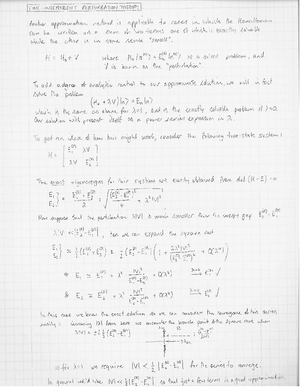 TIME INDEPENDENT PERTURBATION THEORY
Another approximation method is applicable to cases in which the Hamiltonian
can be written as a sum of two terms one of which is exactly solvable
while the other is in some sense "small".
H = H₀ + V where H₀|n⁽⁰⁾⟩ = Eₙ⁽⁰⁾|n⁽⁰⁾⟩ is a solved problem, and
V is known as the "perturbation"
To add a degree of analytic control to our approximate solution, we will in fact
solve the problem
(H₀ + λV)|n⟩ = Eₙ|n⟩
which is the same as above for λ=1, and is the exactly solvable problem if λ=0.
Our solution will present itself as a power series expansion in λ.
To get an idea of how this might work, consider the following two-state system:
H = E₁⁽⁰⁾ λV
λV E₂⁽⁰⁾
The exact eigenenergies for this system are easily obtained from det(H-E) = 0
E₁ E₂ } = (E₁⁽⁰⁾ + E₂⁽⁰⁾)/2 ± √((E₁⁽⁰⁾ - E₂⁽⁰⁾)²/4 + λ²|V|²)
Now suppose that the perturbation λ|V| is small compared to the energy gap E₁⁽⁰⁾-E₂⁽⁰⁾
we can expand the square root
In this case we know the exact solution so we can consider the convergence of this series
so for λ=1 we require |V| < ½|E₁⁽⁰⁾-E₂⁽⁰⁾| for the series to converge.
In general we'd like so that just a few terms is a good approximation